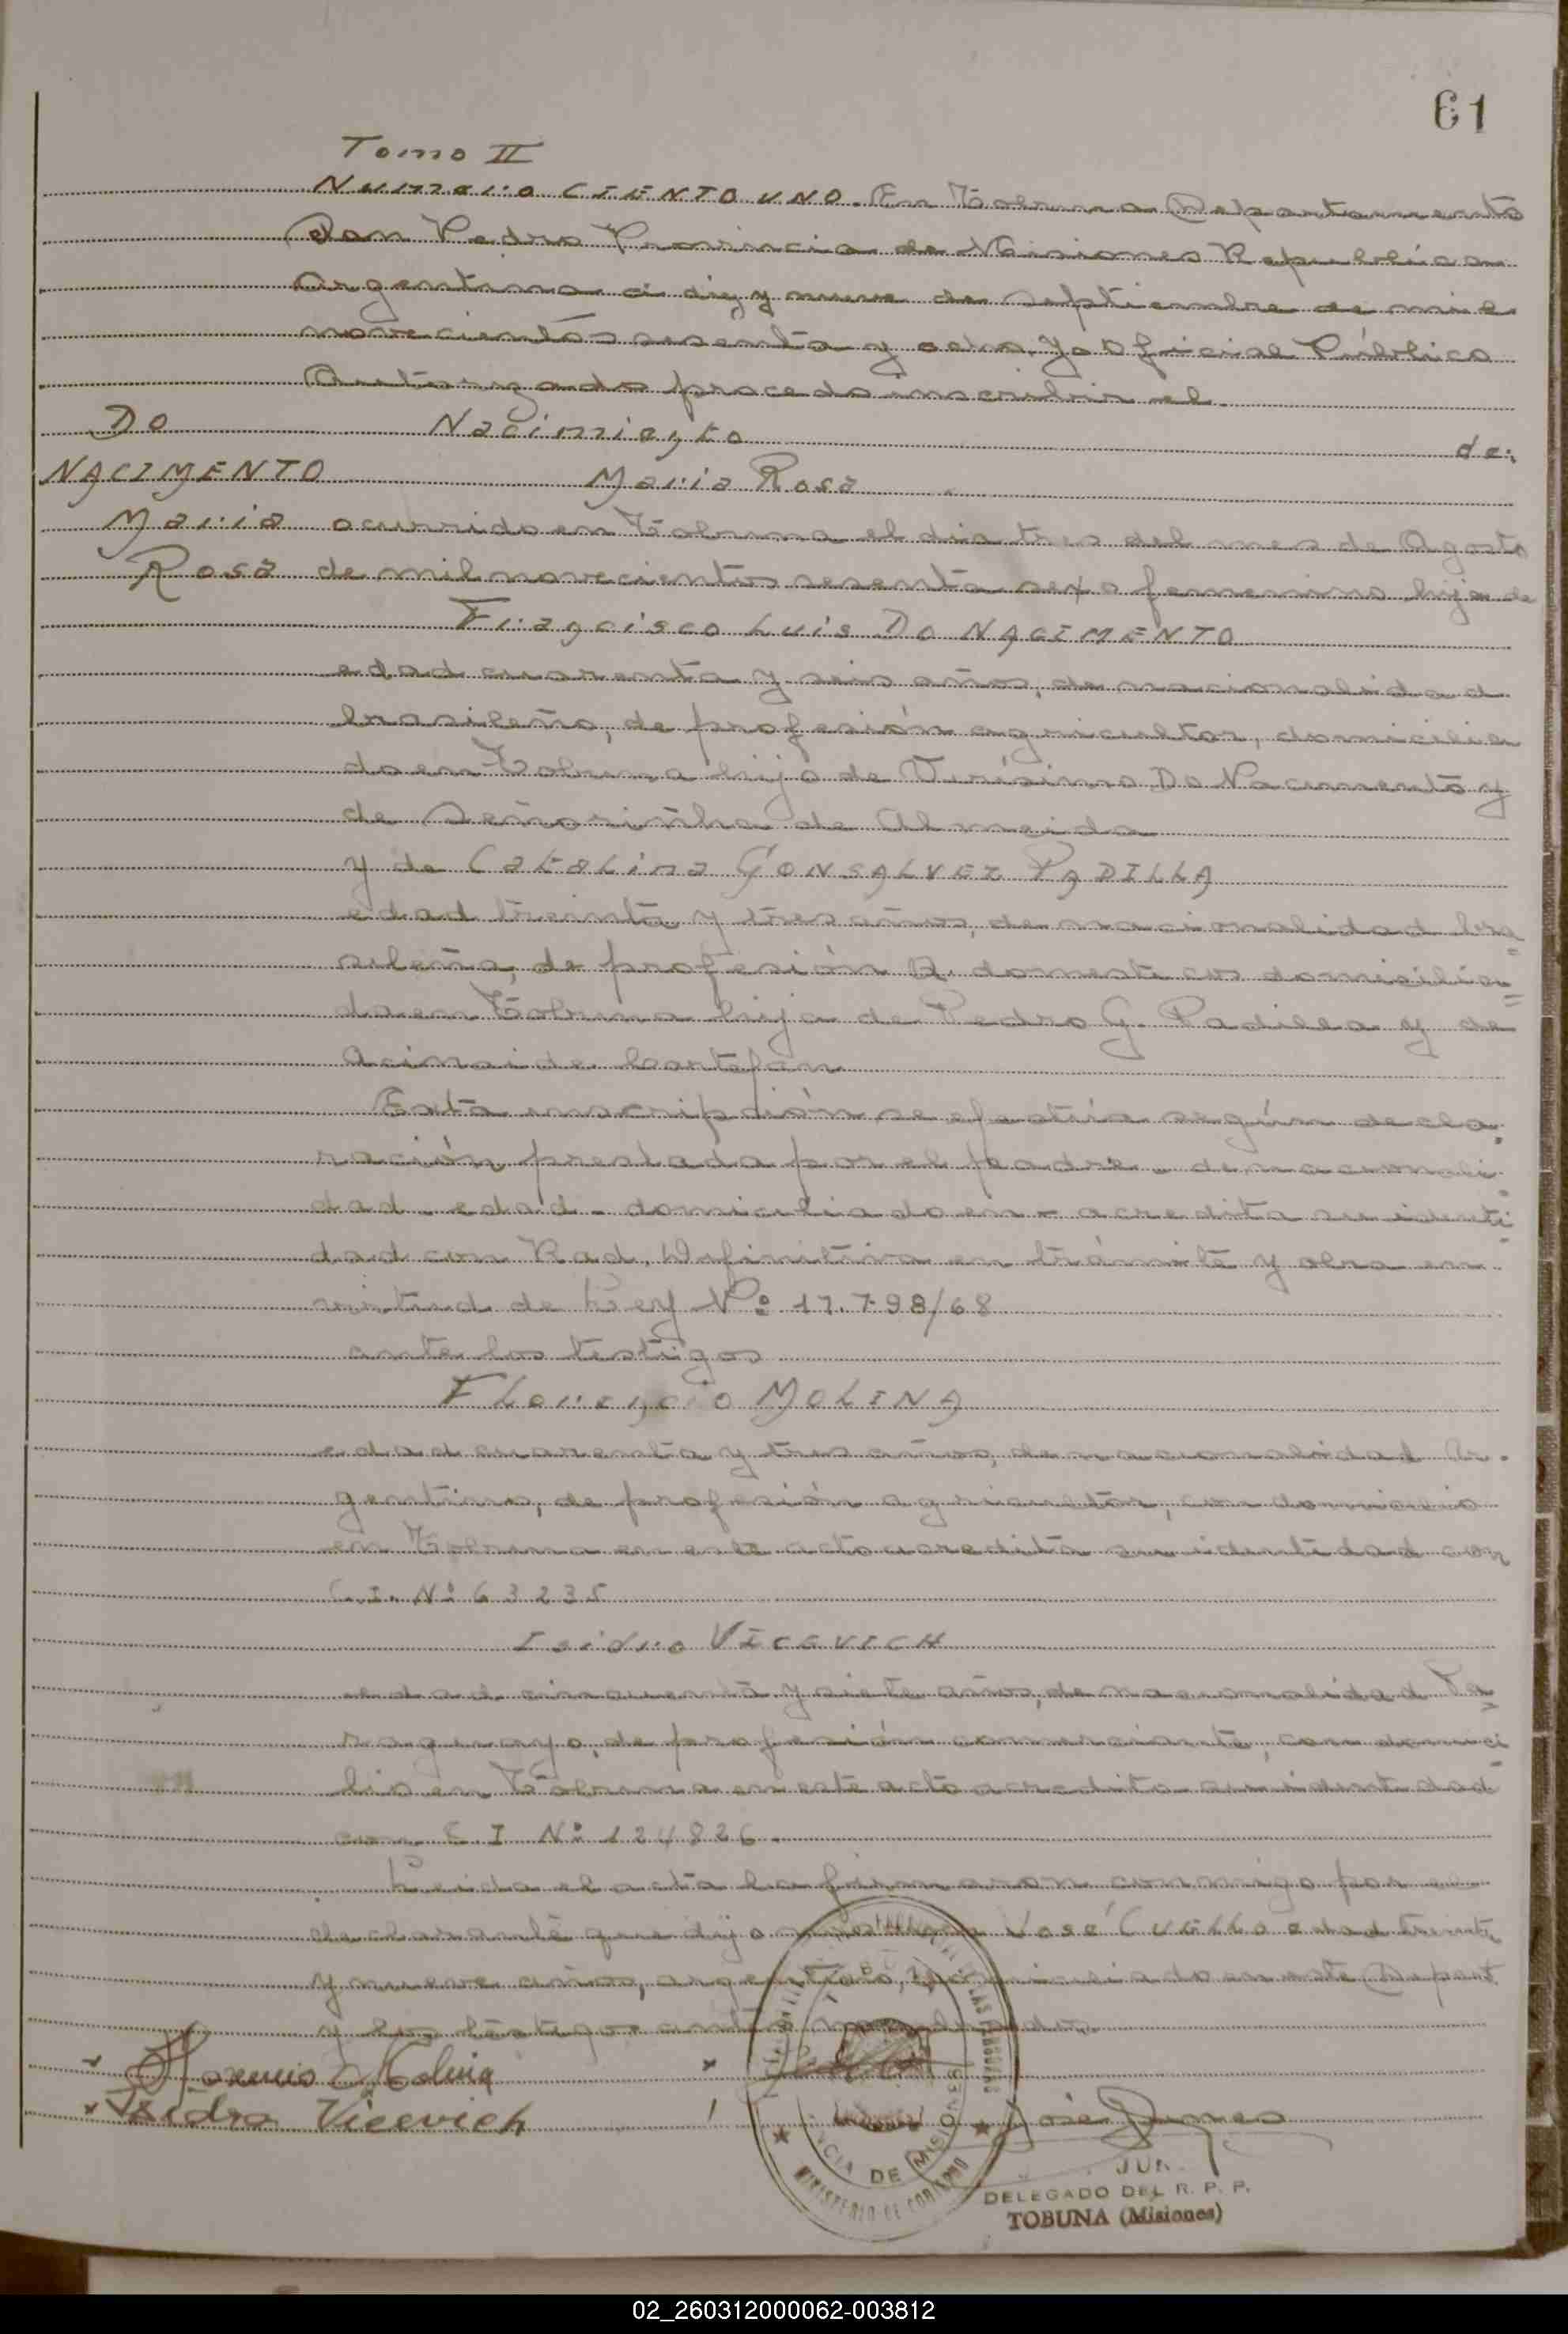 61
Tomo II
Numero CIENTO UNO. En Tobuna Departamento
San Pedro Provincia de Misiones República
Argentina a diez y nueve de septiembre de mil
novecientos sesenta y ocho. Yo Oficial Público
Autorizado procedo inscribir el
DO Nacimiento de:
NACIMENTO Maria Rosa
Maria ocurrido en Tobuna el dia tres del mes de Agosto
Rosa de mil novecientos sesenta sexo femenino hija de
Francisco Luis DO NACIMENTO
edad cuarenta y seis años, de nacionalidad
brasileño, de profesión agricultor, domicilia
do en Tobuna hijo de Do Nacimento y
de de Almeida
y de Catalina GONSALVEZ PADILLA
edad treinta y tres años, de nacionalidad bra=
sileña, de profesión Q. domesticos domicilia=
da en Tobuna hija de Pedro G. Padilla y de

Esta inscripción se efectúa según decla-
ración prestada por el padre - de nacionali-
dad - edad - domiciliado en - acredita su identi-
dad con Rad. Definitiva en trámite y obra en
virtud de Ley Nº 17.798/68
ante los testigos
Florencio MOLINA
edad cuarenta y tres años, de nacionalidad Ar-
gentino, de profesión agricultor, con domicilio
en Tobuna en este acto acredita su identidad con
C.I. Nº 63235
Isidro VICEVICH
edad cincuenta y siete años, de nacionalidad Pa=
raguayo, de profesión comerciante, con domici-
lio en Tobuna en este acto acredita su identidad
con C.I Nº 124826.
Leida el acta la firmaron conmigo por el
declarante que dijo José CUELLO edad treinta
y nueve años, argentino, domiciliado en este Depart.
y los testigos
Florencio Molina
Isidro Vicevich
DE MISIONES
MINISTERIO DE GOBIERNO
DELEGADO DEL R. P. P.
TOBUNA (Misiones)
02_260312000062-003812